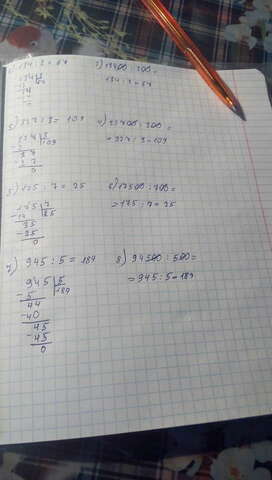 134 : 2 = 67
2) 13400 : 200 =
134 : 2 = 67
3) 327 : 3 = 109
4) 32700 : 300 =
= 327 : 3 = 109
5) 175 : 7 = 25
6) 17500 : 700 =
= 175 : 7 = 25
175 | 7
- 14 | 25
35
- 35
0
7) 945 : 5 = 189
8) 94500 : 500 =
= 945 : 5 = 189
945 | 5
- 5 | 189
44
- 40
45
- 45
0